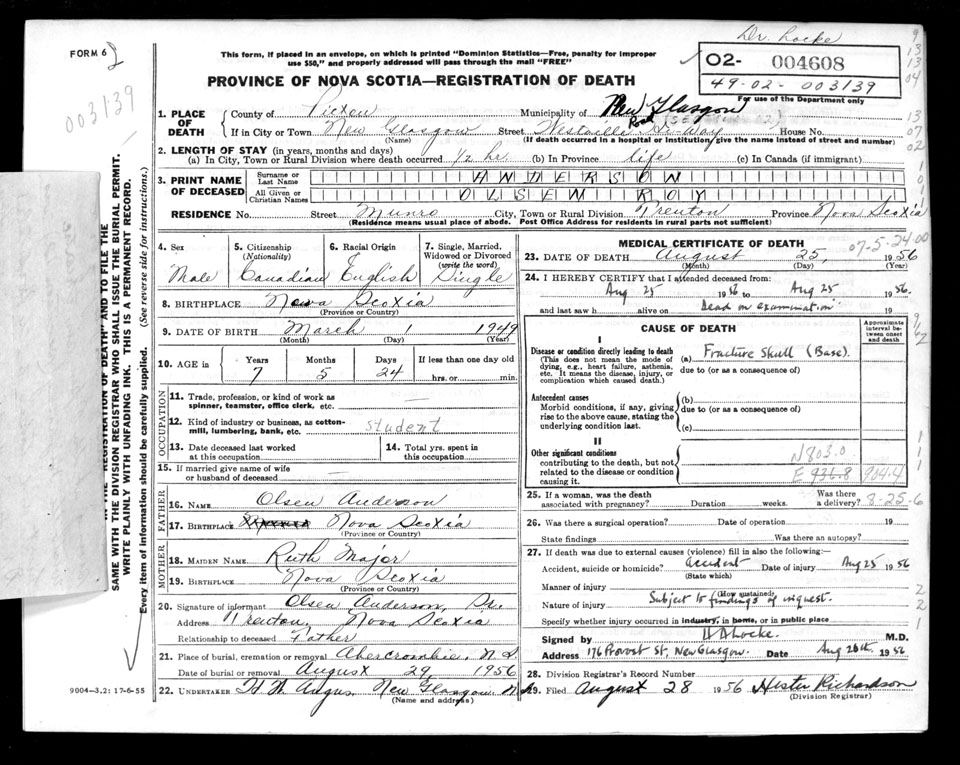 Dr. Locke
FORM 6
2
003139
This form, if placed in an envelope, on which is printed "Dominion Statistics—Free, penalty for improper
use $50," and properly addressed will pass through the mail "FREE"
PROVINCE OF NOVA SCOTIA—REGISTRATION OF DEATH
02- 004608
49-02-003139
For use of the Department only
1. PLACE OF DEATH { County of Pictou Municipality of New Glasgow
If in City or Town New Glasgow Street Westville Road Hi-Way House No.
(Name) (If death occurred in a hospital or institution, give the name instead of street and number)
2. LENGTH OF STAY (in years, months and days)
(a) In City, Town or Rural Division where death occurred 1/2 hr. (b) In Province life (c) In Canada (if immigrant)
3. PRINT NAME OF DECEASED { Surname or Last Name ANDERSON
All Given or Christian Names OLSEN ROY
RESIDENCE No. Street Munro City, Town or Rural Division Trenton Province Nova Scotia
(Residence means usual place of abode. Post Office Address for residents in rural parts not sufficient)
4. Sex Male
5. Citizenship (Nationality) Canadian
6. Racial Origin English
7. Single, Married, Widowed or Divorced (write the word) Single
8. BIRTHPLACE Nova Scotia
(Province or Country)
9. DATE OF BIRTH March 1 1949
(Month) (Day) (Year)
10. AGE in Years 7 Months 5 Days 24 If less than one day old hrs. or min.
OCCUPATION
11. Trade, profession, or kind of work as spinner, teamster, office clerk, etc. —
12. Kind of industry or business, as cotton-mill, lumbering, bank, etc. student
13. Date deceased last worked at this occupation
14. Total yrs. spent in this occupation
15. If married give name of wife or husband of deceased —
FATHER
16. NAME Olsen Anderson
17. BIRTHPLACE Nova Scotia
(Province or Country)
MOTHER
18. MAIDEN NAME Ruth Major
19. BIRTHPLACE Nova Scotia
(Province or Country)
20. Signature of informant Olsen Anderson, Sr.
Address Trenton, Nova Scotia
Relationship to deceased Father
21. Place of burial, cremation or removal Abercrombie, N.S.
Date of burial or removal August 29, 1956
22. UNDERTAKER H W Angus. New Glasgow N
(Name and address)
MEDICAL CERTIFICATE OF DEATH
07-5-24-00
23. DATE OF DEATH August 25, 1956
(Month) (Day) (Year)
24. I HEREBY CERTIFY that I attended deceased from:
Aug 25 1956 to Aug 25 1956.
and last saw h alive on Dead on examination 19
CAUSE OF DEATH
Approximate interval between onset and death
I
Disease or condition directly leading to death (a) Fracture Skull (Base).
(This does not mean the mode of dying, e.g., heart failure, asthenia, etc. It means the disease, injury, or complication which caused death.)
due to (or as a consequence of)
Antecedent causes (b)
Morbid conditions, if any, giving rise to the above cause, stating the underlying condition last.
due to (or as a consequence of)
(c)
II
Other significant conditions contributing to the death, but not related to the disease or condition causing it.
N803.0
E 936.8 904.4
25. If a woman, was the death associated with pregnancy? Duration weeks. Was there a delivery? 8-25-6
26. Was there a surgical operation? Date of operation 19
State findings Was there an autopsy?
27. If death was due to external causes (violence) fill in also the following:—
Accident, suicide or homicide? accident Date of injury Aug 25 1956
(State which)
Manner of injury
(How sustained)
Nature of injury Subject to findings of inquest.
Specify whether injury occurred in industry, in home, or in public place
Signed by M.D.
Address 176 Provost St, New Glasgow. Date Aug 28th 1956
28. Division Registrar's Record Number
29. Filed August 28 1956 Hester Richardson
(Division Registrar)
SAME WITH THE DIVISION REGISTRAR WHO SHALL ISSUE THE BURIAL PERMIT.
WRITE PLAINLY WITH UNFADING INK. THIS IS A PERMANENT RECORD.
Every item of information should be carefully supplied. (See reverse side for instructions.)
9004-3.2: 17-6-55